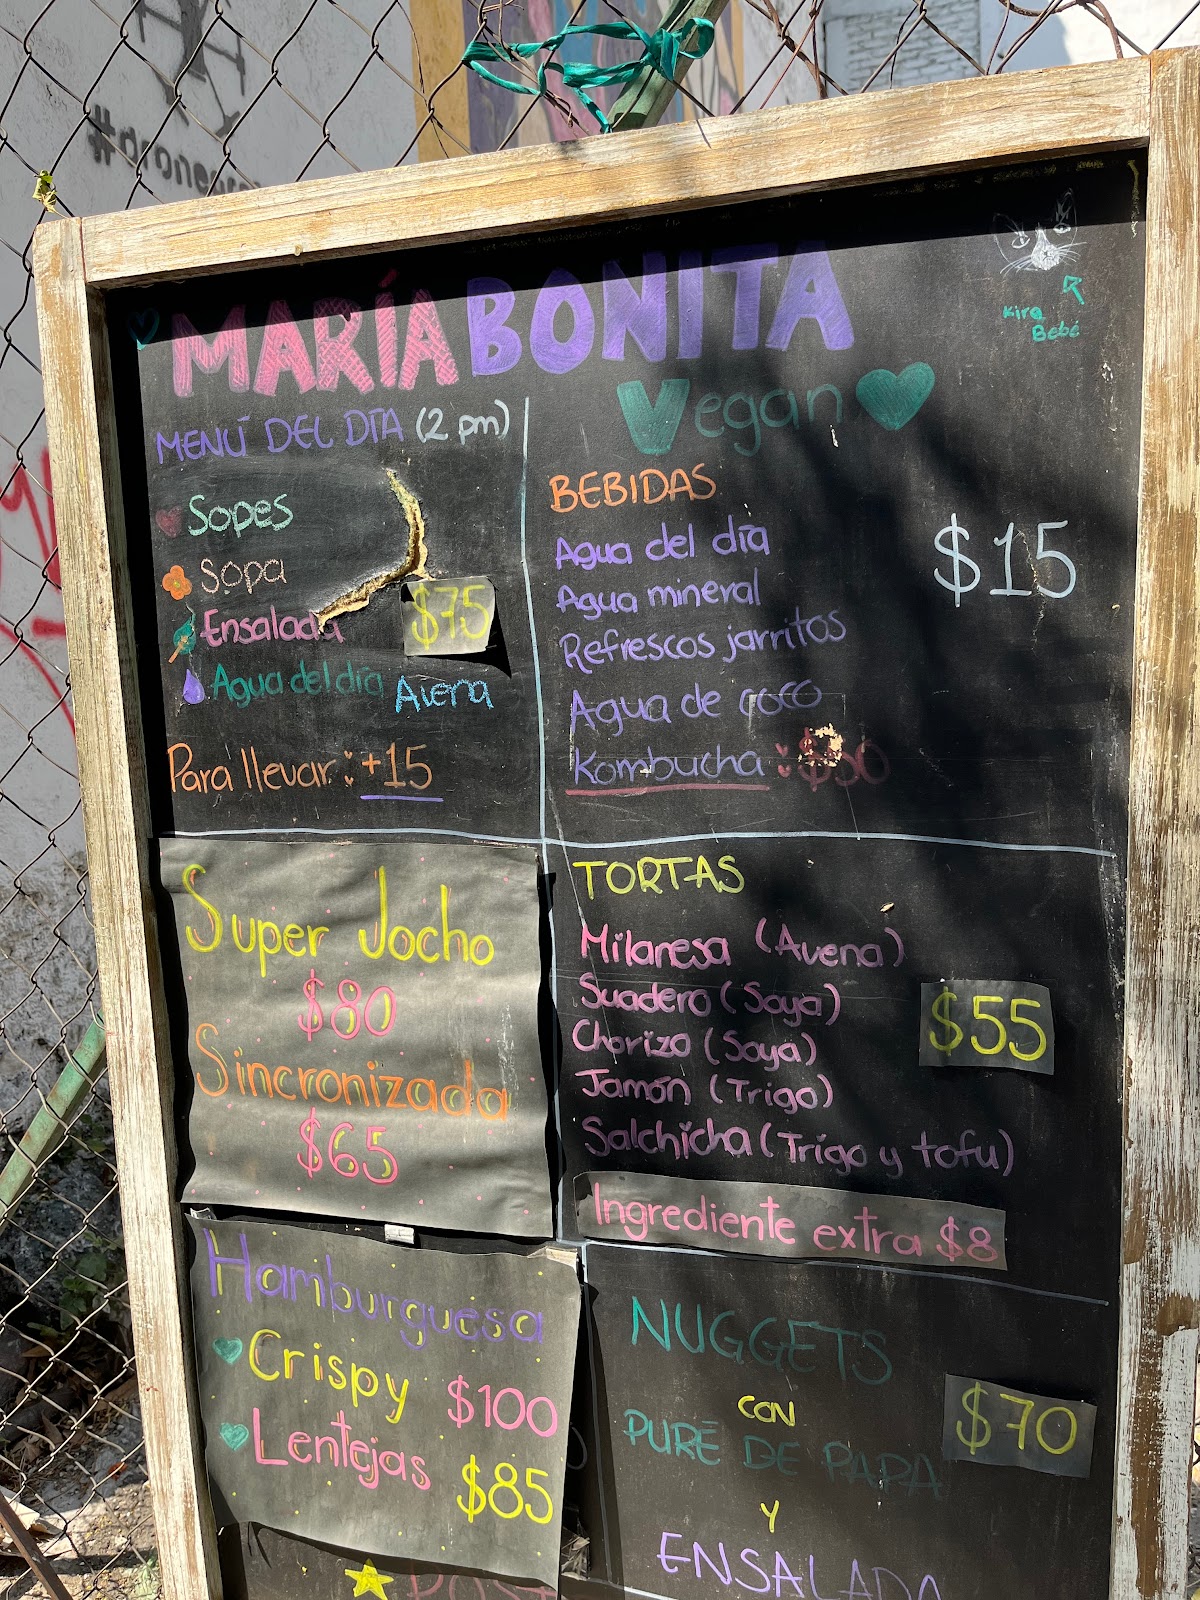 MARÍA BONITA
Vegan
Kira
Bebé
MENÚ DEL DÍA (2 pm)
Sopes
Sopa
Ensalada
$75
Agua del día Avena
Para llevar: +15
BEBIDAS
Agua del día
$15
Agua mineral
Refrescos jarritos
Agua de coco
Kombucha
Super Jocho
$80
Sincronizada
$65
TORTAS
Milanesa (Avena)
Suadero (Soya)
Chorizo (Soya)
$55
Jamón (Trigo)
Salchicha (Trigo y tofu)
Ingrediente extra $8
Hamburguesa
Crispy $100
Lentejas $85
NUGGETS
CON
PURÉ DE PAPA
$70
Y
ENSALADA